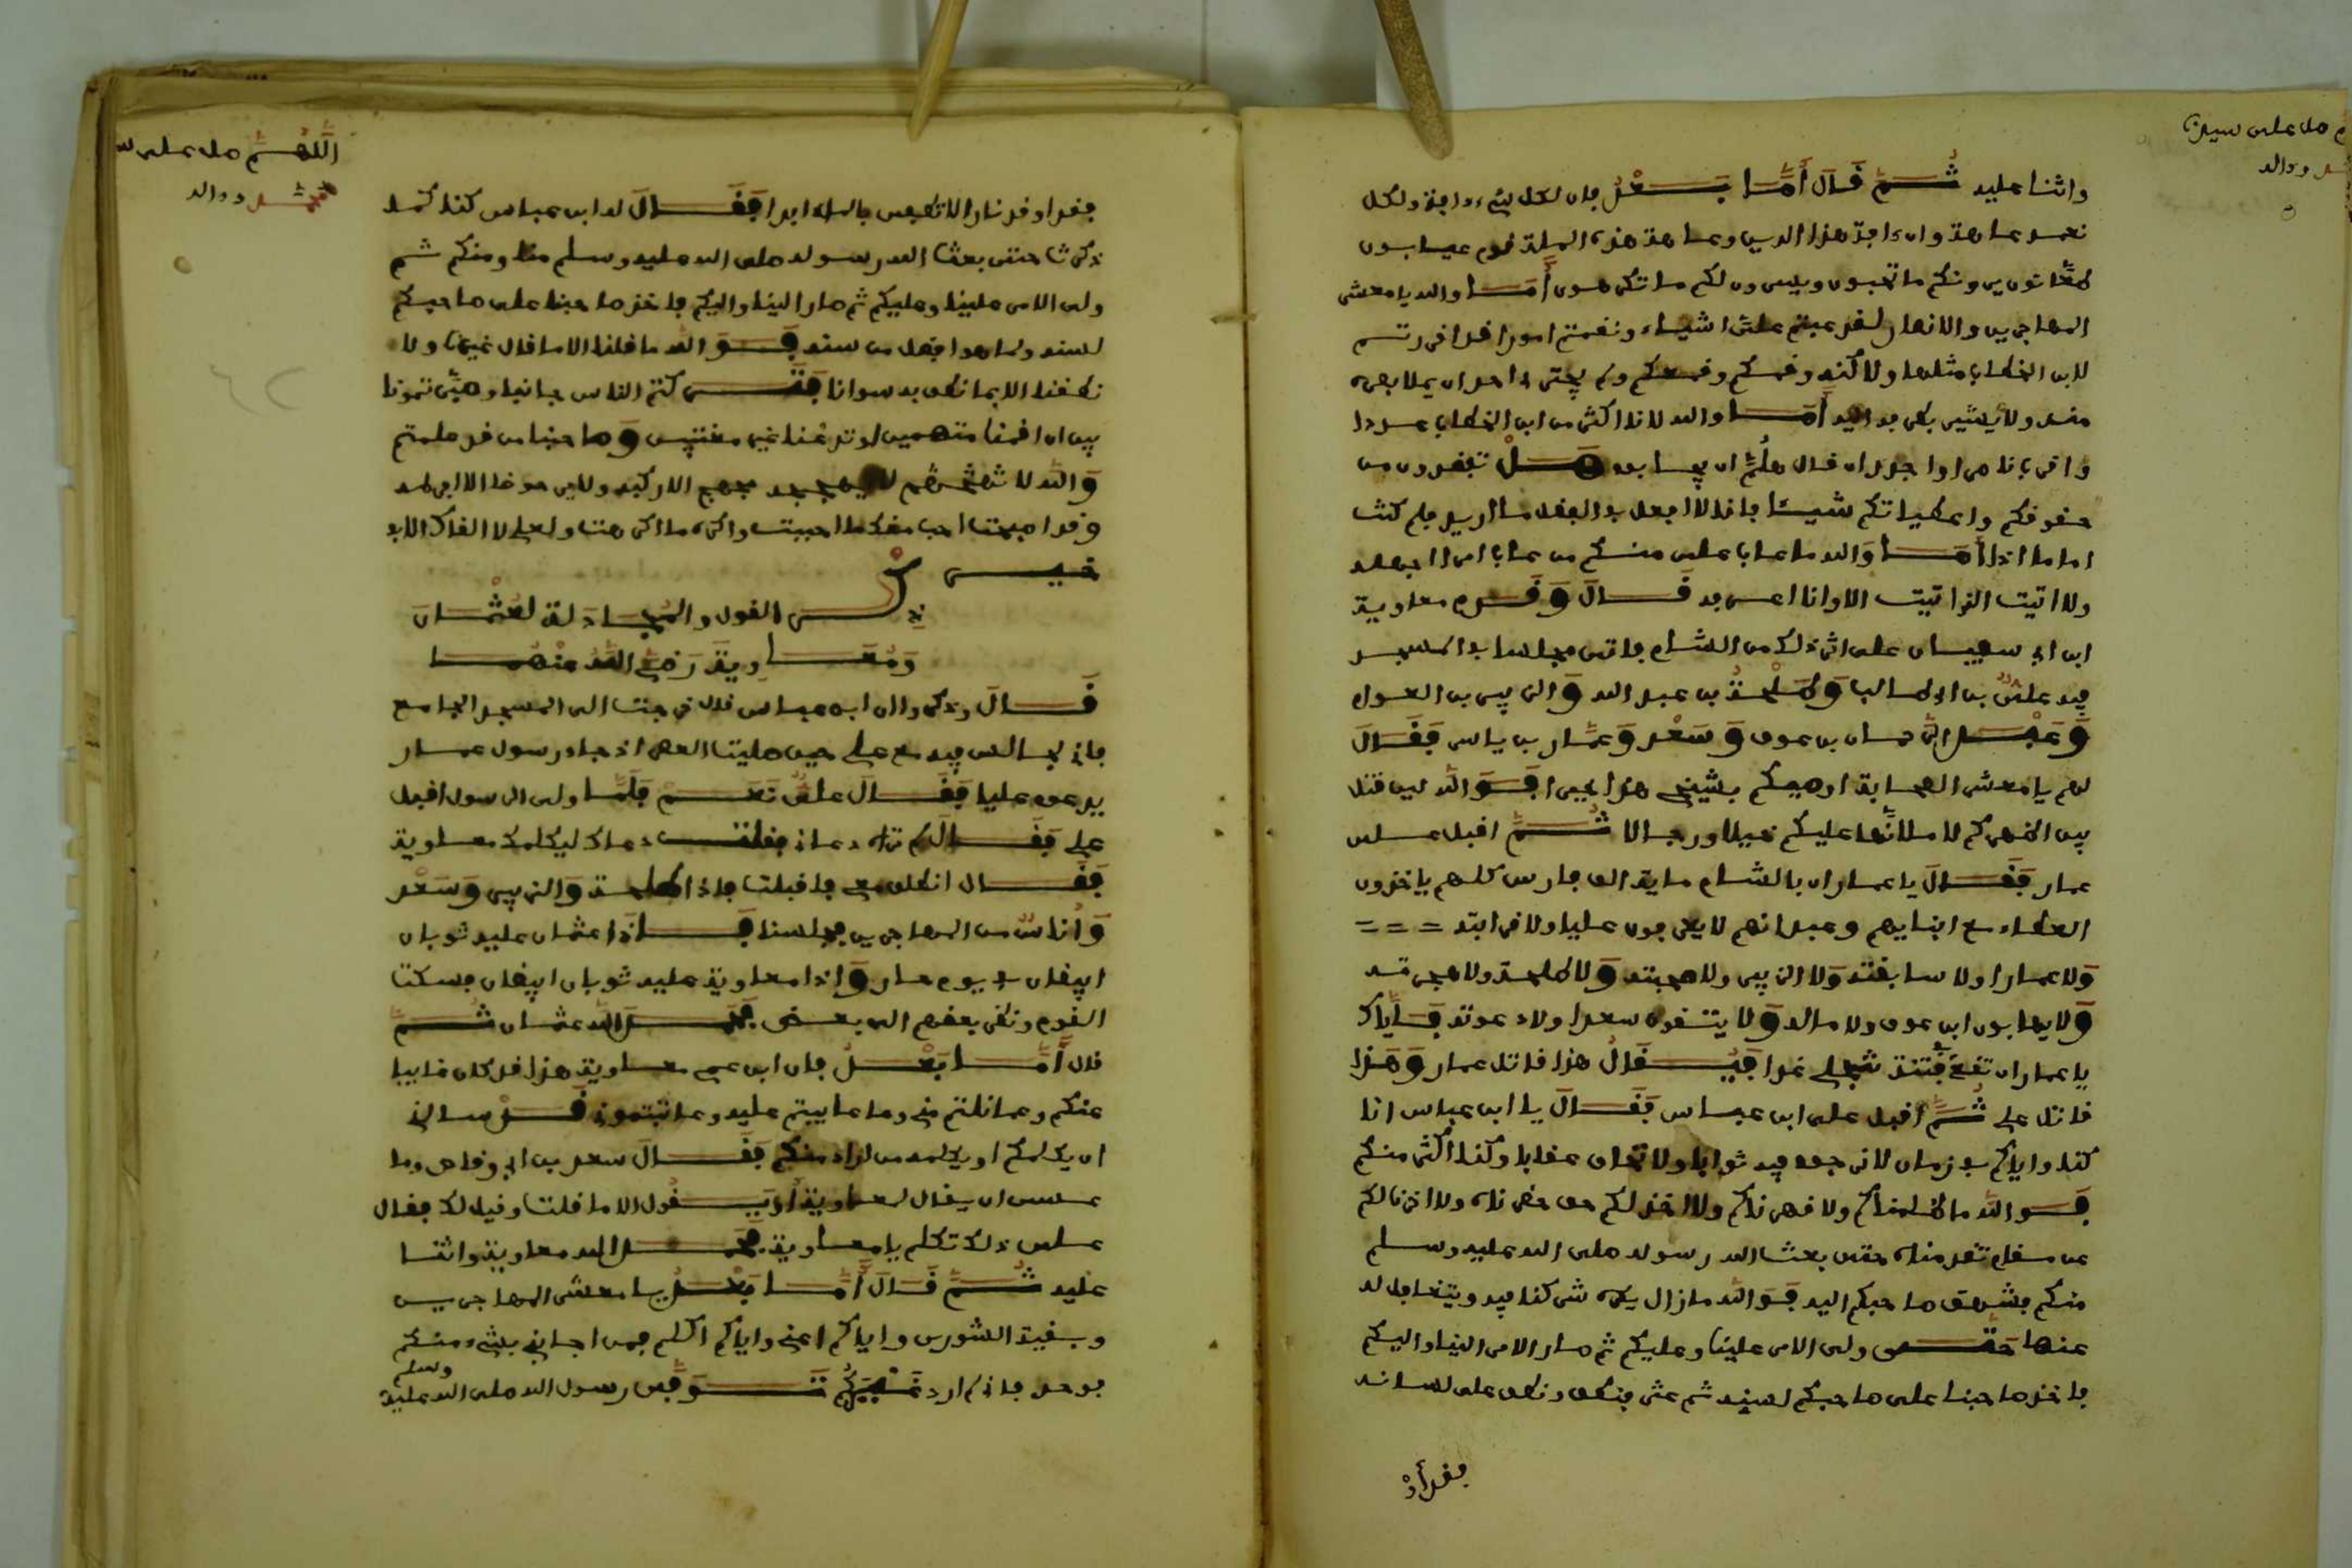 واثنا عليه ثُمَّ فَالَ أَمَّا بَعْدُ فان لكل شيء داجة ولكل
نعمه عاهة وان داجة هذا الدين وعاهة هذه الملة قوم عيابون
طعّانون يرونكم ما تحبون ويسرون لكم ما تكرهون أَمَا والله يا معشر
المهاجرين والانصار لفد عبتم علىّ اشياء ونفمتم امورا فد افررتم
لابن الخطاب مثلها ولاكنه وفمكم وفمعكم ولم يجتر احد ان يملا بصره
منه ولا يشير بطرفه اليه أَمَا والله لانا اكثر من ابن الخطاب عددا
وافرب ناصرا واجدر ان فال هلمّ ان يجاب هَلْ تفقدون من
حفوفكم واعطياتكم شيئا فانا لا ابعل في البضل ما اريد فلم كنت
اماما اذا أَمَا وَالله ما عاب على منكم من عاب امرا اجهله
ولا اتيت الذي اتيت الا وانا اعرفه فَالَ وَفَدم معاوية
ابن ابي سبيان على اثر ذلك من الشام فاتى مجلسا في المسجد
فيه علىّ بن ابي طالب وَطَلْحَةُ بن عبد الله وَالزبير بن العوام
وَعَبْدُ الرَّحمان بن عوف وَسَعْد وَعَمَّار بن ياسر فَفَالَ
لهم يا معشر الصحابة اوصيكم بشيخي هذا خيرا فَوَالله لين فتل
بين اظهركم لاملانّها عليكم خيلا ورجالا ثُمَّ افبل على
عمار فَفَالَ يا عمار ان بالشام ماية الف فارس كلهم ياخذون
العطاء مع ابنايهم وعبدانهم لا يعرفون عليا ولا فرابته = = =
وَلا عمارا ولا سابفته وَلا الزبير ولا صحبته وَلا طلحة ولا هجرته
وَلا يهابون ابن عوف ولا ماله وَلا يتفون سعدا ولا دعوته فَإيّاك
يا عمار ان تفع فِتنة تنجلي غدا فَيُفَالُ هذا فاتل عمار وَهَذا
فاتل علي ثُمَّ افبل على ابن عباس فَفَالَ يا ابن عباس انا
كنا واياكم في زمان لا نرجوا فيه ثوابا ولا نخاف عفابا وكنا اكثر منكم
فَوالله ما ظلمناكم ولا فهرناكم ولا اخذلكم حف حضرناه ولا اخرناكم
عن مفام تفدمناه حتى بعث الله رسوله صلى الله عليه وسلم
منكم فشهف صاحبكم اليه فَوَالله مازال يكره شركنا فيه ويتغافل له
عنها حَتَّى ولى الامر علينا وعليكم ثم صار الامر الينا واليكم
فاخذ صاحبنا على صاحبكم لسنه ثم عثر فنطف ونطف على لسانه
ففد أو
اللَّهُمَّ صل على س
مُحَمَّد ووالد
ففد اوفد نارا لا تطفى بالماء ابدا فَفَالَ له ابن عباس كنا كما
ذكرت حتى بعث الله رسوله صلى الله عليه وسلم منا ومنكم ثم
ولى الامر علينا وعليكم ثم صار الينا واليكم فاخذ صاحبنا على صاحبكم
لسنه ولما هو افضل من سنه فَوَ الله ما فلنا الا ما فال غيرنا ولا
نطفنا الا بما نطف به سوانا فَتَرَكتم الناس جانبا وصيّرتمونا
بين ان افمنا متهمين او نزعنا غير معتبين وَصاحبنا من فد علمتم
وَالله لا
وفد اصبحت احب منك ما احببت واكره ما اكرهت ولعلي لا الفاك الا في
خير
ذِكْر الفول والمُجادَلة لعُثْمان
وَمُعَاوِيةَ رَضِيَ اللهُ عنْهما
فَالَ وذكروا ان ابن عباس فال خرجت الى المسجد الجامع
فاني لجالس فيه مع علي حين صليت العصر اذ جاء رسول عثمان
يدعوه عليا فَفَالَ علىّ نَعَم فَلَمَّا ولى الرسول افبل
علي فَفَالَ لم تراه دعاني ففلت دعاك ليكلمك معاوية
فَفَال انطلق معي فافبلت فاذا طلحة وَالزبير وَسَعْد
وَأُناسٌ من المهاجرين فجلسنا فَإذَا عثمان عليه ثوبان
ابيضان في يوم حار وَاذا معاوية عليه ثوبان ابيضان فسكت
الفوم ونظر بعضهم الى بعض فَحَمِدَ الله عثمان ثُمَّ
فال أَمَّا بَعْدُ فان ابن عمي معاوية هذا فد كان غايبا
عنكم وعما نلتم مني وما عاييتم عليه وعاتبتموني فَدْ سالني
ان يكلمكم او يكلمه من اراد منكم فَفَالَ سعد بن ابي وفاص وما
عسى ان يفال لمعاوية أَوْ يَفُول الا ما فلت او فيل لك ففال
على ذلك تكلم يا معاوية فَحَمِدَ الله معاوية واثنا
عليه ثُمَّ فَالَ أَمَّا بَعْدُ يا معشر المهاجرين
وبفية الشورى واياكم اعني واياكم اكلم فمن اجابني بشيء منكم
فوحد فاني لم ارد غَيْرَكُم تَوَفى رسول الله صلى الله عليه وسلم